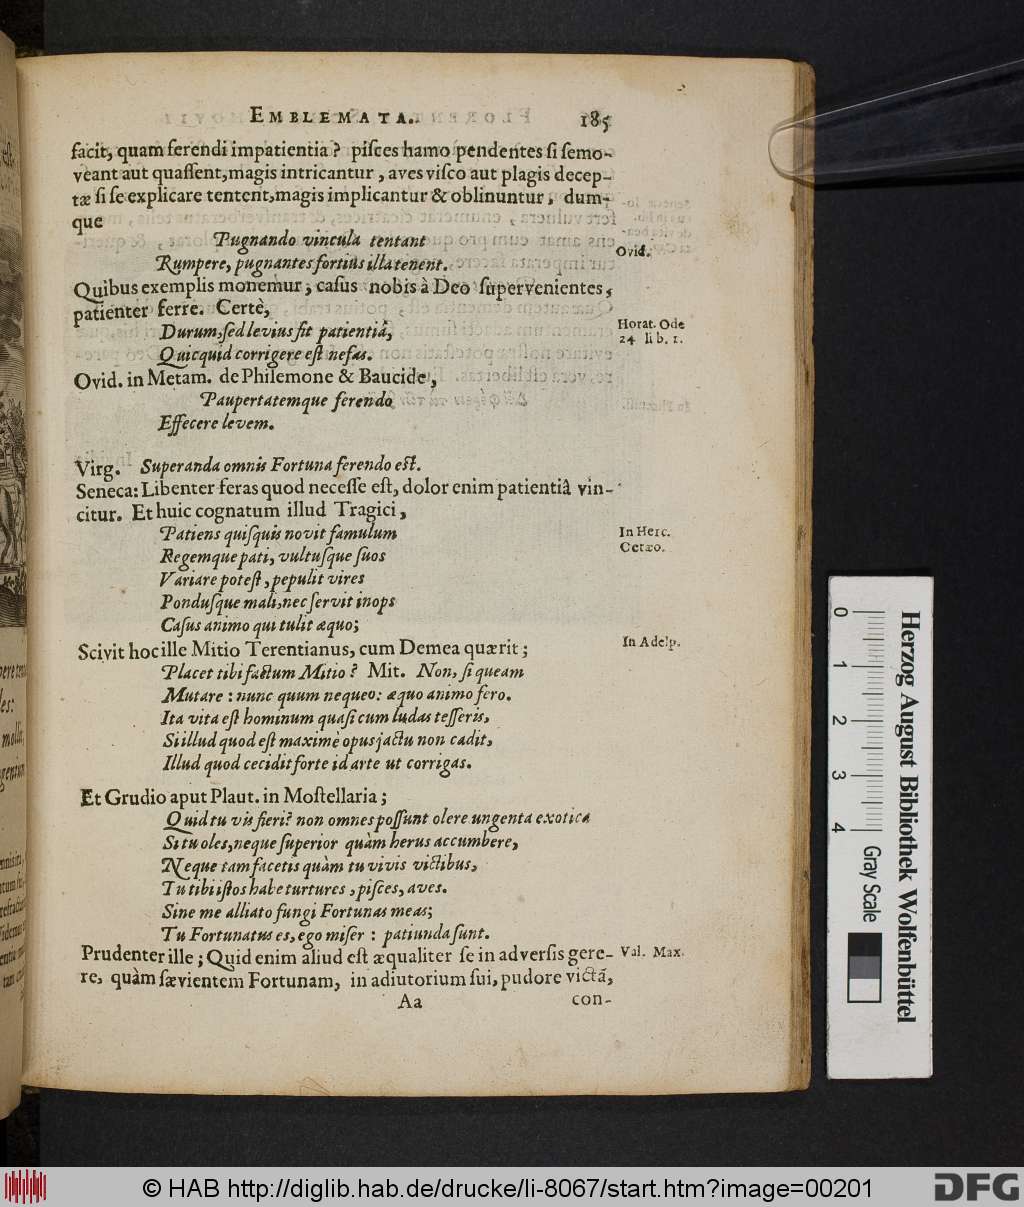 EMBLEMATA. 185
facit, quam ferendi impatientia? pisces hamo pendentes si semo-
veant aut quassent, magis intricantur, aves visco aut plagis decep-
tæ si se explicare tentent, magis implicantur & oblinuntur, dum-
que
Pugnando vincula tentant
Ovid.
Rumpere, pugnantes fortius illa tenent.
Quibus exemplis monemur, casus nobis à Deo supervenientes,
patienter ferre. Certè,
Durum, sed levius fit patientiâ,
Horat. Ode
24 lib. 1.
Quicquid corrigere est nefas.
Ovid. in Metam. de Philemone & Baucide,
Paupertatemque ferendo
Effecere levem.
Virg. Superanda omnis Fortuna ferendo est.
Seneca: Libenter feras quod necesse est, dolor enim patientiâ vin-
citur. Et huic cognatum illud Tragici,
Patiens quisquis novit famulum
In Herc.
Oetæo.
Regemque pati, vultusque suos
Variare potest, pepulit vires
Pondusque mali, nec servit inops
Casus animo qui tulit æquo;
Scivit hoc ille Mitio Terentianus, cum Demea quærit;
In Adelp.
Placet tibi factum Mitio? Mit. Non, si queam
Mutare: nunc quum nequeo: æquo animo fero.
Ita vita est hominum quasi cum ludas tesseris,
Si illud quod est maximè opus jactu non cadit,
Illud quod cecidit forte id arte ut corrigas.
Et Grudio aput Plaut. in Mostellaria;
Quid tu vis fieri? non omnes possunt olere ungenta exotica
Si tu oles, neque superior quàm herus accumbere,
Neque tam facetis quàm tu vivis victibus,
Tu tibi istos habe turtures, pisces, aves.
Sine me alliato fungi Fortunas meas;
Tu Fortunatus es, ego miser: patiunda sunt.
Prudenter ille; Quid enim aliud est æqualiter se in adversis gere-
Val. Max.
re, quàm sævientem Fortunam, in adiutorium sui, pudore victã,
Aa con-
0 1 2 3 4
Gray Scale
Herzog August Bibliothek Wolfenbüttel
© HAB http://diglib.hab.de/drucke/li-8067/start.htm?image=00201
DFG